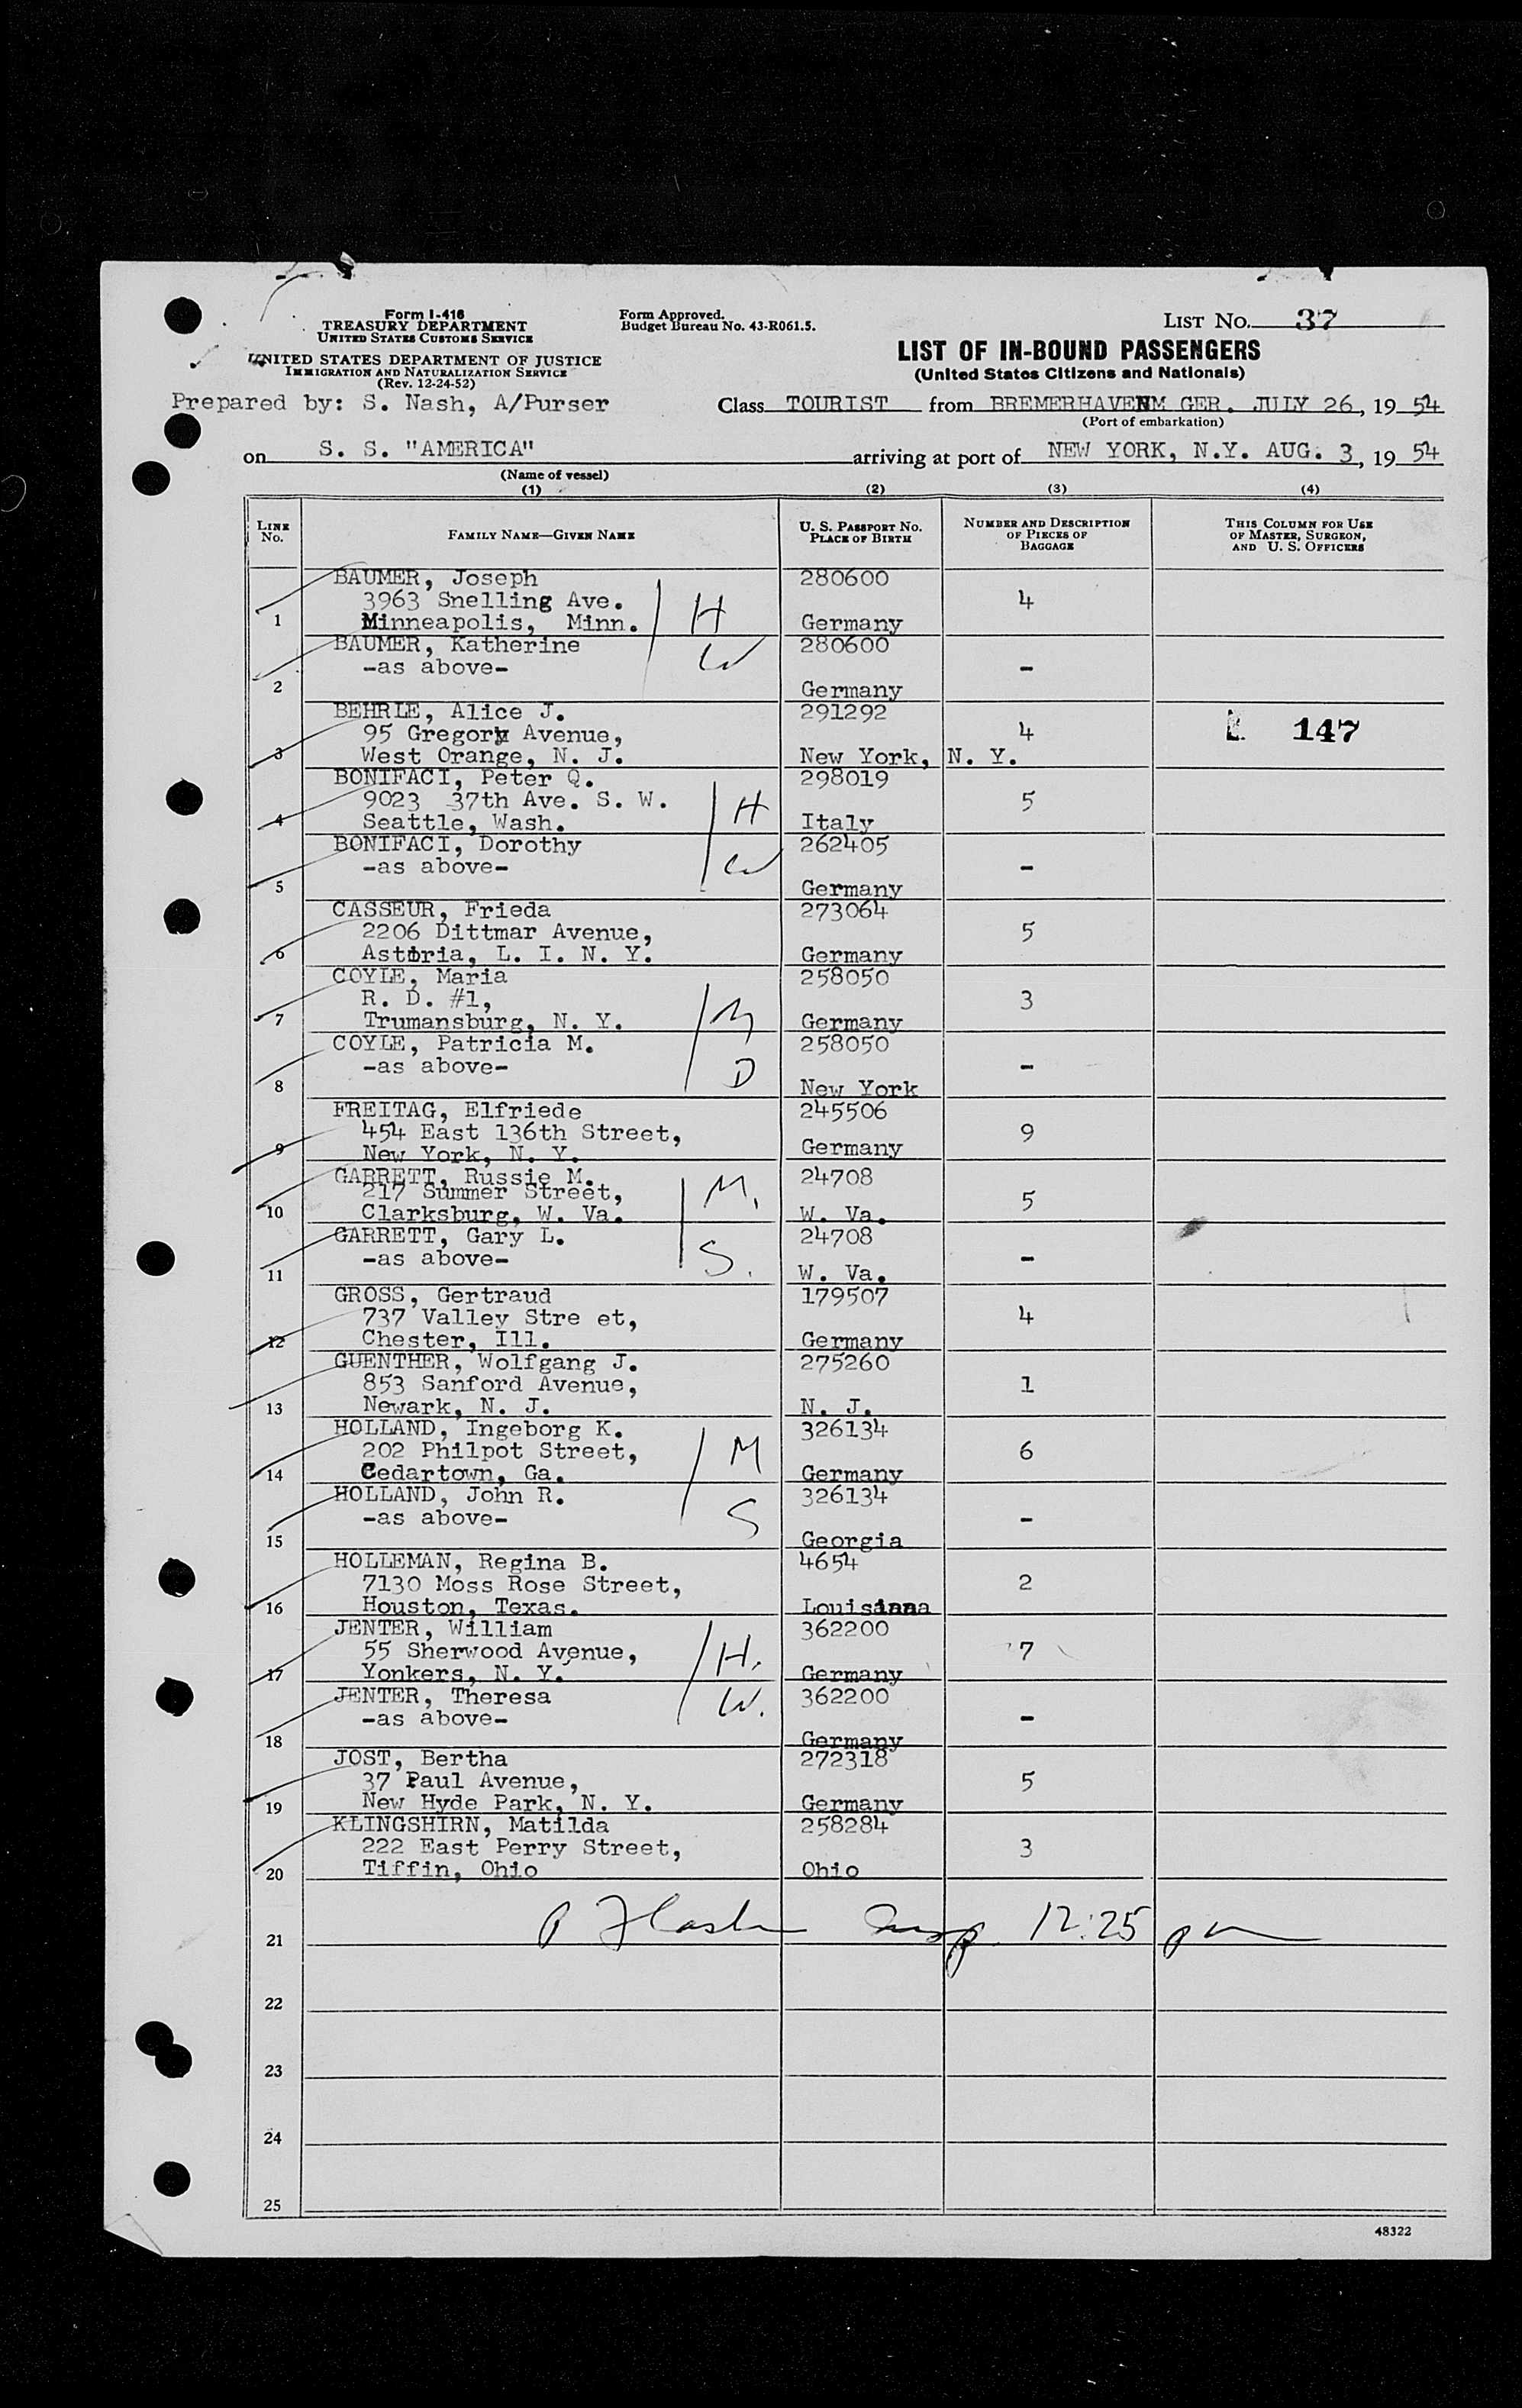 Form I-416
TREASURY DEPARTMENT
UNITED STATES CUSTOMS SERVICE
UNITED STATES DEPARTMENT OF JUSTICE
IMMIGRATION AND NATURALIZATION SERVICE
(Rev. 12-24-52)
Form Approved.
Budget Bureau No. 43-R061.5.
LIST No. 37
LIST OF IN-BOUND PASSENGERS
(United States Citizens and Nationals)
Prepared by: S. Nash, A/Purser
Class TOURIST from BREMERHAVENM GER. JULY 26, 19 54
(Port of embarkation)
on S. S. "AMERICA" arriving at port of NEW YORK, N.Y. AUG. 3, 19 54
(Name of vessel)
(1) (2) (3) (4)
LINE No.
FAMILY NAME—GIVEN NAME
U. S. PASSPORT No.
PLACE OF BIRTH
NUMBER AND DESCRIPTION
OF PIECES OF
BAGGAGE
THIS COLUMN FOR USE
OF MASTER, SURGEON,
AND U. S. OFFICERS
BAUMER, Joseph 280600
3963 Snelling Ave. H 4
1 Minneapolis, Minn. Germany
BAUMER, Katherine 280600
-as above- W -
2 Germany
BEHRLE, Alice J. 291292
95 Gregory Avenue, 4 147
3 West Orange, N. J. New York, N. Y.
BONIFACI, Peter Q. 298019
9023 37th Ave. S. W. H 5
4 Seattle, Wash. Italy
BONIFACI, Dorothy 262405
-as above- W -
5 Germany
CASSEUR, Frieda 273064
2206 Dittmar Avenue, 5
6 Astoria, L. I. N. Y. Germany
COYLE, Maria 258050
R. D. #1, 3
7 Trumansburg, N. Y. M Germany
COYLE, Patricia M. 258050
-as above- D -
8 New York
FREITAG, Elfriede 245506
454 East 136th Street, 9
9 New York, N. Y. Germany
GARRETT, Russie M. 24708
217 Summer Street, M. 5
10 Clarksburg, W. Va. W. Va.
GARRETT, Gary L. 24708
-as above- S. -
11 W. Va.
GROSS, Gertraud 179507
737 Valley Stre et, 4
12 Chester, Ill. Germany
GUENTHER, Wolfgang J. 275260
853 Sanford Avenue, 1
13 Newark, N. J. N. J.
HOLLAND, Ingeborg K. 326134
202 Philpot Street, M 6
14 Cedartown, Ga. Germany
HOLLAND, John R. 326134
-as above- S -
15 Georgia
HOLLEMAN, Regina B. 4654
7130 Moss Rose Street, 2
16 Houston, Texas. Louisiana
JENTER, William 362200
55 Sherwood Avenue, H. 7
17 Yonkers, N. Y. Germany
JENTER, Theresa 362200
-as above- W. -
18 Germany
JOST, Bertha 272318
37 Paul Avenue, 5
19 New Hyde Park, N. Y. Germany
KLINGSHIRN, Matilda 258284
222 East Perry Street, 3
20 Tiffin, Ohio Ohio
21 12:25 pm
22
23
24
25
48322